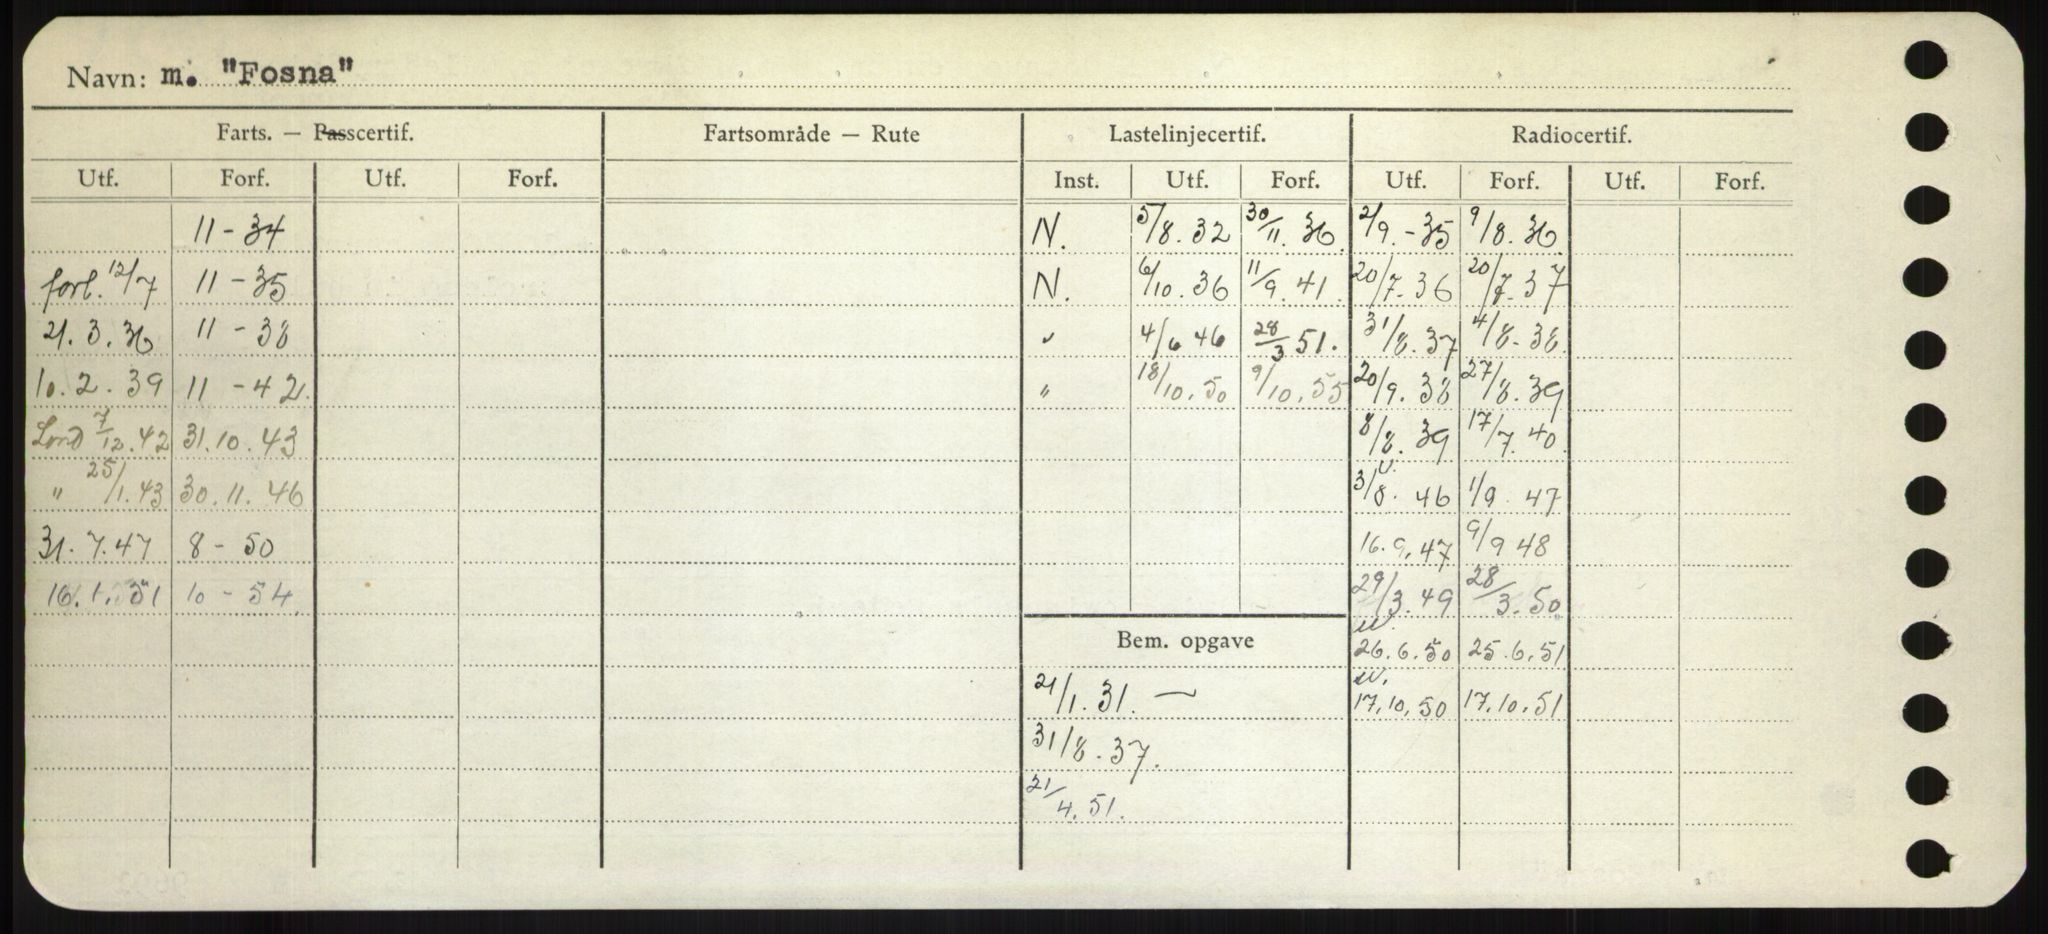 Navn: m. "Fosna"
Farts. — Passcertif. Fartsområde — Rute Lastelinjecertif. Radiocertif.
Utf. Forf. Utf. Forf. Inst. Utf. Forf. Utf. Forf. Utf. Forf.
11 - 34 N. 5/8. 32 30/11. 36. 2/9. - 35 9/8. 36
forl. 12/7 11 - 35 N. 6/10. 36 11/9. 41. 20/7. 36 20/7. 37
21. 3. 36 11 - 38 " 4/6 46 28/3 51. 31/8. 37 4/8. 38.
10. 2. 39 11 - 42. " 18/10. 50 9/10. 55 20/9. 38 27/8. 39
Lond 7/12. 42 31. 10. 43 8/8. 39 17/7. 40.
" 25/1. 43 30. 11. 46 3/8. 46 1/9. 47
31. 7. 47 8 - 50 16. 9. 47 9/9 48
16. 1. 51 10 - 54. 29/3. 49 28/3. 50
Bem. opgave 26. 6. 50 25. 6. 51
21/1. 31. — 17. 10. 50 17. 10. 51
31/8. 37.
21/4. 51.